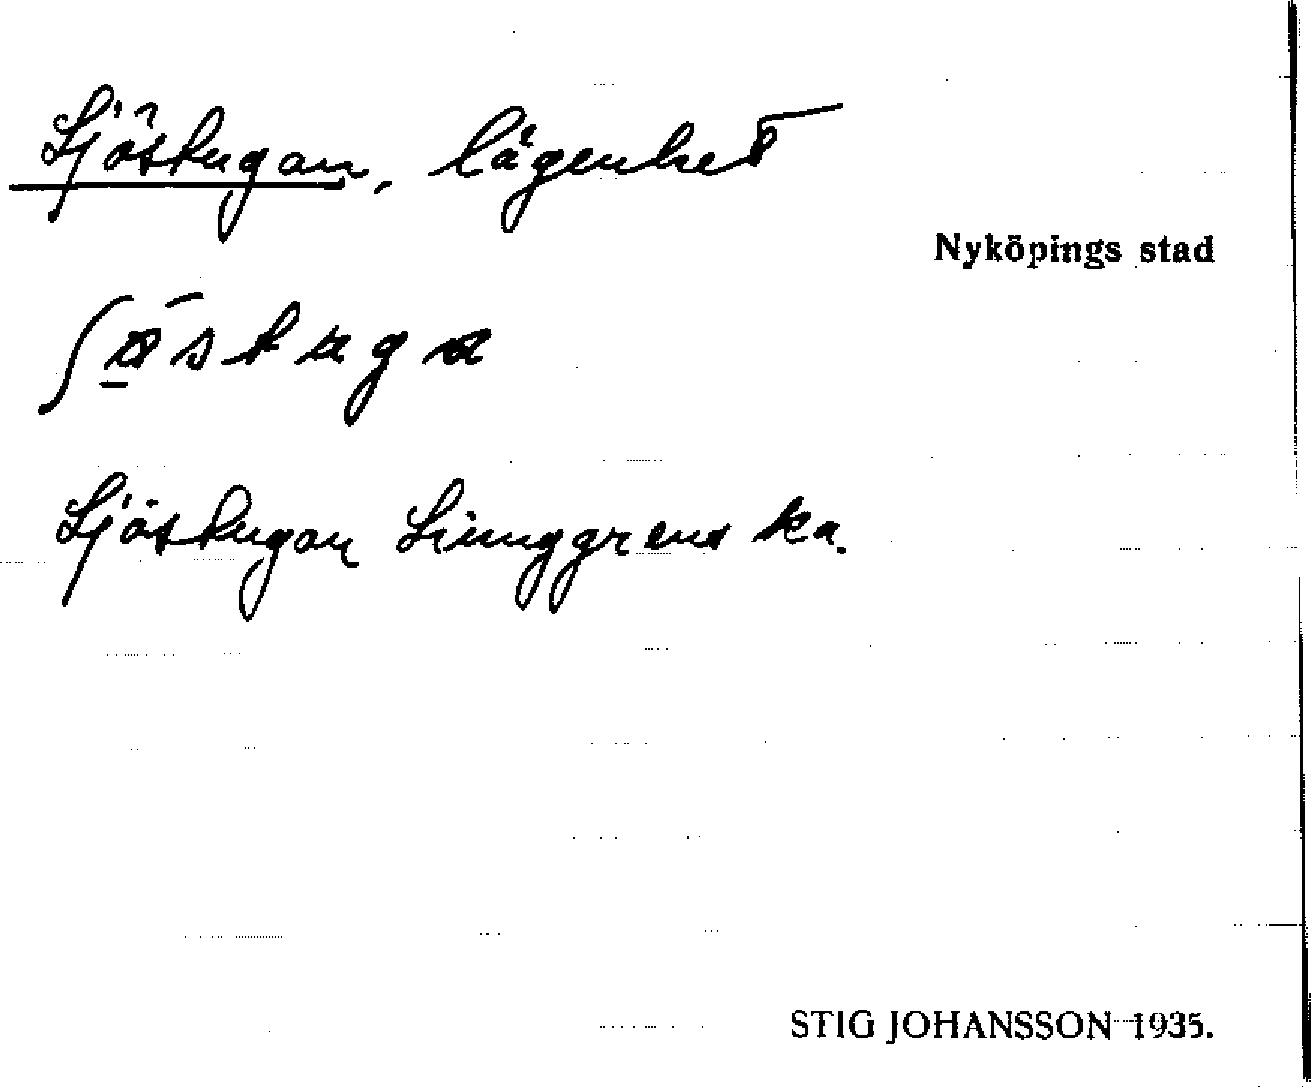 Sjöstugan, lägenhet
Nyköpings stad
Sjöstugan Ljunggrenska.
STIG JOHANSSON 1935.